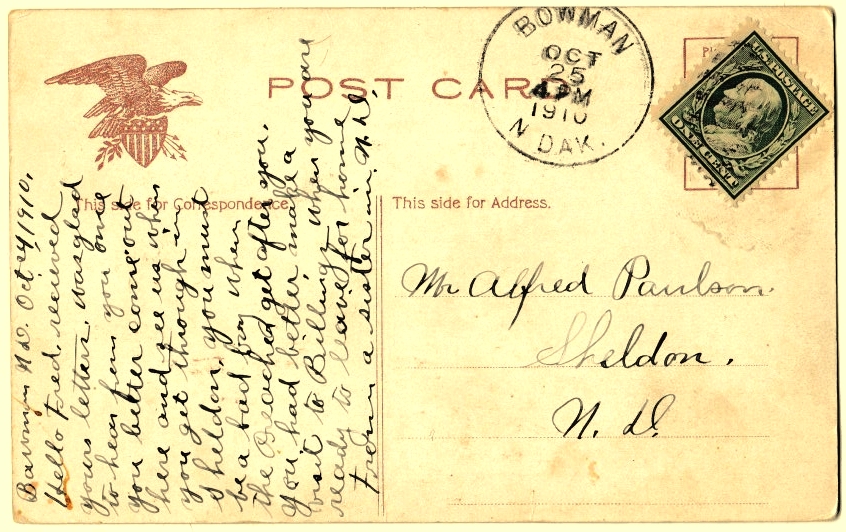 POST CARD
BOWMAN
OCT
25
4 PM
1910
N DAK.
U.S. POSTAGE
ONE CENT
This side for Correspondence.
This side for Address.
Mr Alfred Paulson.
Sheldon.
N. D.
Bowman N. D. Oct 24/1910.
Hello Fred, recieved
yours letters, was glad
to hear from you one
you better come out
here and see us when
you get through in
Sheldon, you must
be a bad boy when
the get after you.
you had better make a
visit to Billings when you are
ready to leave for home
From a sister in N. D.